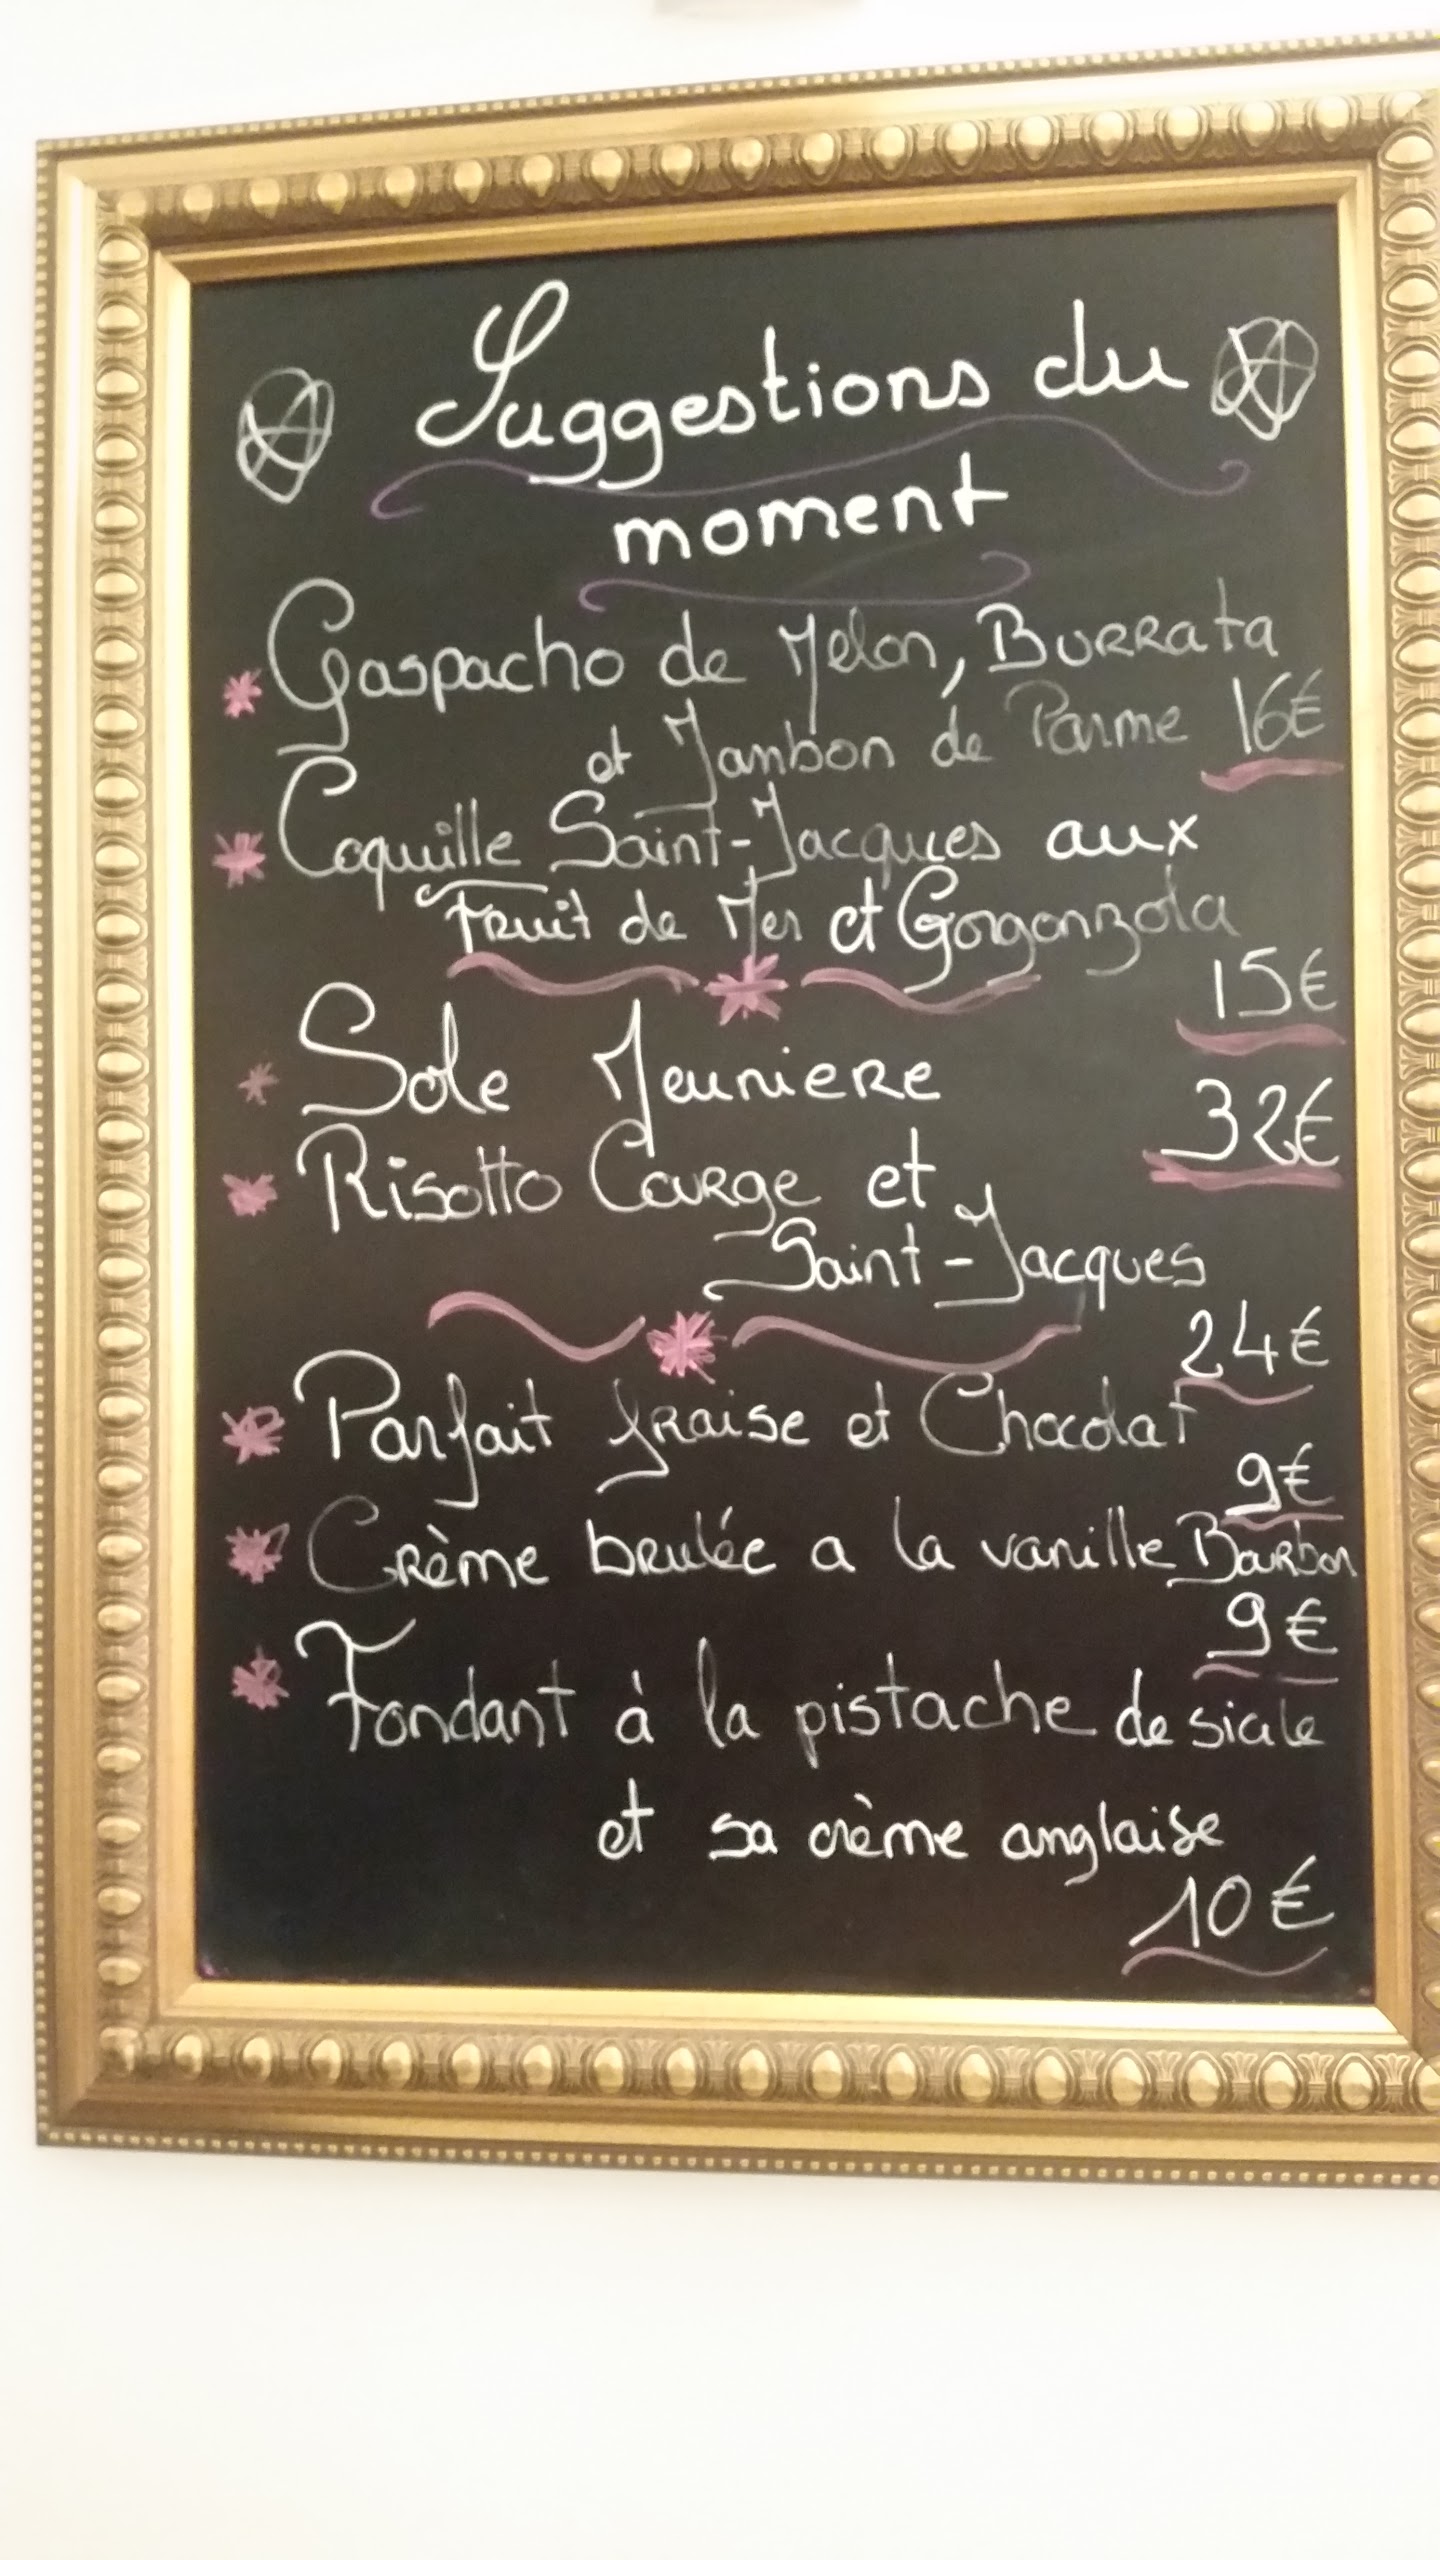 Suggestions du
moment
Gaspacho de Melon, Burrata
et Jambon de Parme 16€
Coquille Saint-Jacques aux
Fruit de Mer et Gorgonzola
15€
Sole Meuniere
32€
Risotto Courge et
Saint-Jacques
24€
Parfait fraise et Chocolat
9€
Crème brulée a la vanille Bourbon
9€
Fondant à la pistache de sicile
et sa crème anglaise
10€